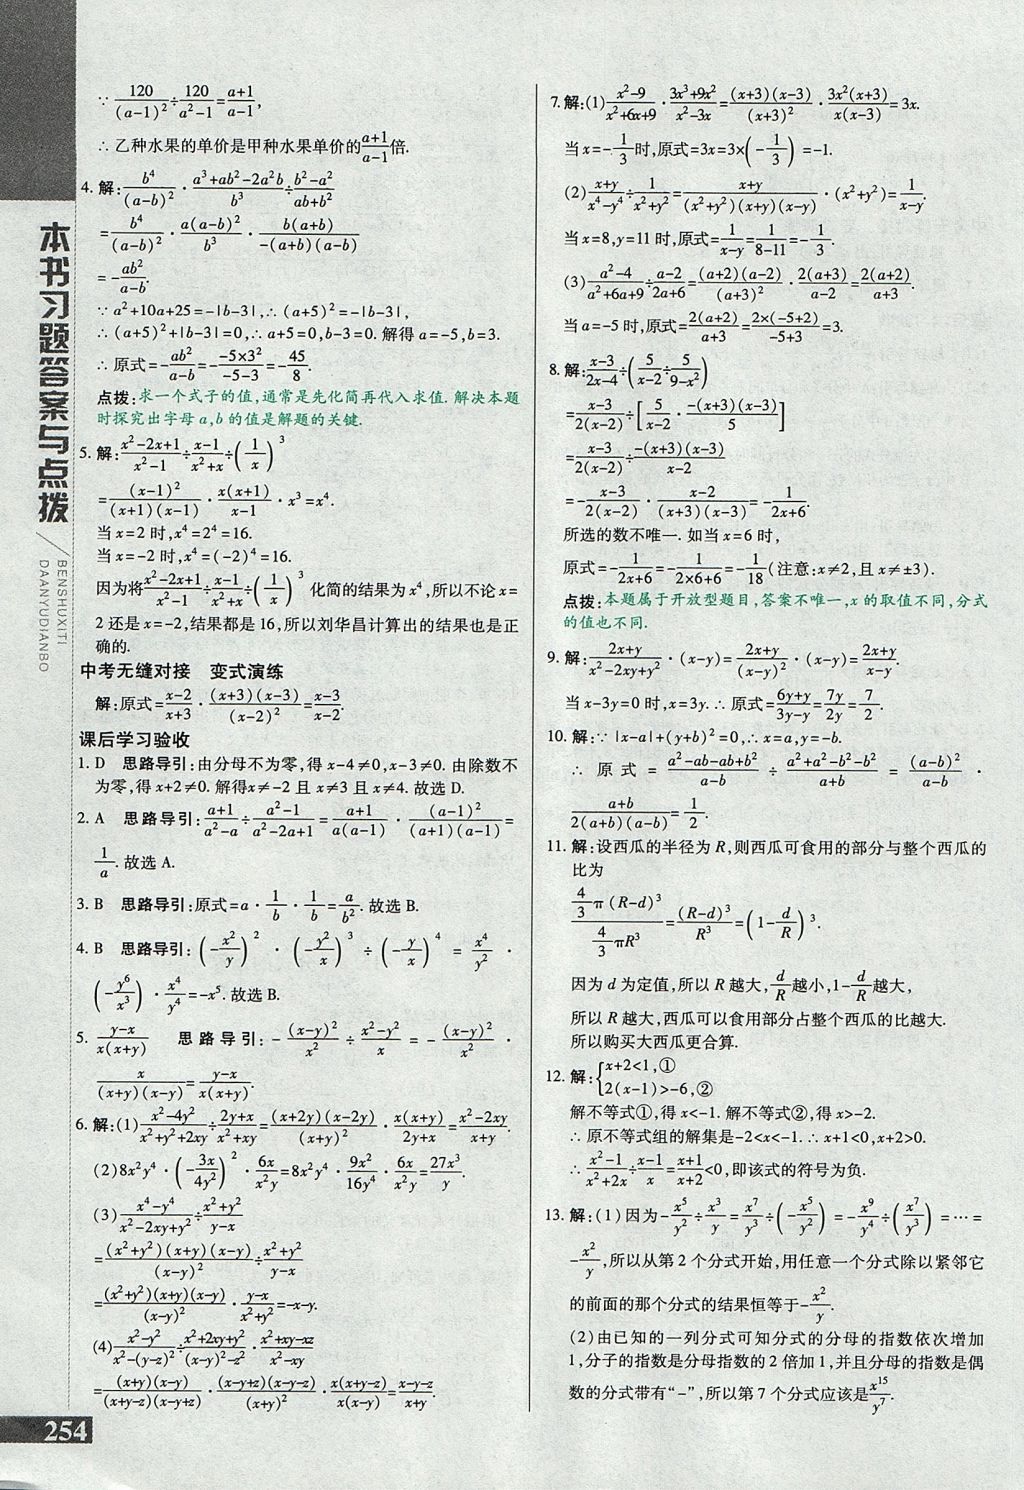 本书习题答案与点拨
BENSHUXITI
DAANYUDIANBO
∵ 120/(a-1)²÷120/(a²-1)=(a+1)/(a-1),
∴ 乙种水果的单价是甲种水果单价的(a+1)/(a-1)倍.
4. 解:b⁴/(a-b)²·(a³+ab²-2a²b)/b³÷(b²-a²)/(ab+b²)
=b⁴/(a-b)²·a(a-b)²/b³·b(a+b)/[-(a+b)(a-b)]
=-ab²/(a-b).
∵ a²+10a+25=-|b-3|,∴ (a+5)²=-|b-3|,
∴ (a+5)²+|b-3|=0,∴ a+5=0,b-3=0. 解得a=-5,b=3.
∴ 原式=-ab²/(a-b)=-(-5×3²)/(-5-3)=-45/8.
点拨:求一个式子的值,通常是先化简再代入求值. 解决本题
时探究出字母a,b的值是解题的关键.
5. 解:(x²-2x+1)/(x²-1)÷(x-1)/(x²+x)÷(1/x)³
=(x-1)²/[(x+1)(x-1)]·x(x+1)/(x-1)·x³=x⁴.
当x=2时,x⁴=2⁴=16.
当x=-2时,x⁴=(-2)⁴=16.
因为将(x²-2x+1)/(x²-1)÷(x-1)/(x²+x)÷(1/x)³化简的结果为x⁴,所以不论x=
2还是x=-2,结果都是16,所以刘华昌计算出的结果也是正
确的.
中考无缝对接 变式演练
解:原式=(x-2)/(x+3)·(x+3)(x-3)/(x-2)²=(x-3)/(x-2).
课后学习验收
1. D 思路导引:由分母不为零,得x-4≠0,x-3≠0. 由除数不
为零,得x+2≠0. 解得x≠-2且x≠3且x≠4. 故选D.
2. A 思路导引:(a+1)/(a²-a)÷(a²-1)/(a²-2a+1)=(a+1)/[a(a-1)]·(a-1)²/[(a+1)(a-1)]=
1/a. 故选A.
3. B 思路导引:原式=a·1/b·1/b=a/b². 故选B.
4. B 思路导引:(-x²/y)²·(-y²/x)³÷(-y/x)⁴=x⁴/y²·
(-y⁶/x³)·x⁴/y⁴=-x⁵. 故选B.
5. (y-x)/[x(x+y)] 思路导引:-(x-y)²/x²÷(x²-y²)/x=-(x-y)²/x²·
x/[(x+y)(x-y)]=(y-x)/[x(x+y)].
6. 解:(1)(x²-4y²)/(x²+y²+2xy)÷(2y+x)/(x²+xy)=(x+2y)(x-2y)/(x+y)²·x(x+y)/(2y+x)=(x²-2xy)/(x+y).
(2)8x²y⁴·(-3x/4y²)²·6x/x²y=8x²y⁴·9x²/16y⁴·6x/x²y=27x³/y.
(3)(x⁴-y⁴)/(x²-2xy+y²)÷(x²+y²)/(y-x)
=(x²+y²)(x+y)(x-y)/(x-y)²÷(x²+y²)/(y-x)
=(x²+y²)(x+y)(x-y)/(x-y)²·(y-x)/(x²+y²)=-x-y.
(4)(x²-y²)/[x²-(y-z)²]÷(x²+2xy+y²)/[(x-y)²-z²]·(x²+xy-xz)/(x²-xy)
=(x+y)(x-y)/[(x+y-z)(x-y+z)]·(x-y+z)(x-y-z)/(x+y)²·x(x+y-z)/[x(x-y)]=(x-y-z)/(x+y).
254
7. 解:(1)(x²-9)/(x²+6x+9)·(3x³+9x²)/(x²-3x)=(x+3)(x-3)/(x+3)²·3x²(x+3)/[x(x-3)]=3x.
当x=-1/3时,原式=3x=3×(-1/3)=-1.
(2)(x+y)/(x⁴-y⁴)÷1/(x²+y²)=(x+y)/[(x²+y²)(x+y)(x-y)]·(x²+y²)=1/(x-y).
当x=8,y=11时,原式=1/(x-y)=1/(8-11)=-1/3.
(3)(a²-4)/(a²+6a+9)÷(a-2)/(2a+6)=(a+2)(a-2)/(a+3)²·2(a+3)/(a-2)=2(a+2)/(a+3).
当a=-5时,原式=2(a+2)/(a+3)=2×(-5+2)/(-5+3)=3.
8. 解:(x-3)/(2x-4)÷(5/(x-2)÷5/(9-x²))
=(x-3)/[2(x-2)]÷[5/(x-2)·-(x+3)(x-3)/5]
=(x-3)/[2(x-2)]÷-(x+3)(x-3)/(x-2)
=-(x-3)/[2(x-2)]·(x-2)/[(x+3)(x-3)]=-1/(2x+6).
所选的数不唯一. 如当x=6时,
原式=-1/(2x+6)=-1/(2×6+6)=-1/18(注意:x≠2,且x≠±3).
点拨:本题属于开放型题目,答案不唯一,x的取值不同,分式
的值也不同.
9. 解:(2x+y)/(x²-2xy+y²)·(x-y)=(2x+y)/(x-y)²·(x-y)=(2x+y)/(x-y).
当x-3y=0时,x=3y. ∴ 原式=(6y+y)/(3y-y)=7y/2y=7/2.
10. 解:∵ |x-a|+(y+b)²=0,∴ x=a,y=-b.
∴ 原式=(a²-ab-ab+b²)/(a-b)÷(a²+a²-b²-b²)/(a+b)=(a-b)²/(a-b)·
(a+b)/[2(a+b)(a-b)]=1/2.
11. 解:设西瓜的半径为R,则西瓜可食用的部分与整个西瓜的
比为
[4/3π(R-d)³]/[4/3πR³]=(R-d)³/R³=(1-d/R)³.
因为d为定值,所以R越大,d/R越小,1-d/R越大,
所以R越大,西瓜可以食用部分占整个西瓜的比越大.
所以购买大西瓜更合算.
12. 解:{x+2<1,①
2(x-1)>-6,②
解不等式①,得x<-1. 解不等式②,得x>-2.
∴ 原不等式组的解集是-2<x<-1. ∴ x+1<0,x+2>0.
∴ (x²-1)/(x²+2x)÷(x-1)/x=(x+1)/(x+2)<0,即该式的符号为负.
13. 解:(1)因为-x⁵/y²÷x³/y=x⁷/y³÷(-x⁵/y²)=-x⁹/y⁴÷(x⁷/y³)=…=
-x²/y,所以从第2个分式开始,用任意一个分式除以紧邻它
的前面的那个分式的结果恒等于-x²/y.
(2)由已知的一列分式可知分式的分母的指数依次增加
1,分子的指数是分母指数的2倍加1,并且分母的指数是偶
数的分式带有“-”,所以第7个分式应该是x¹⁵/y⁷.